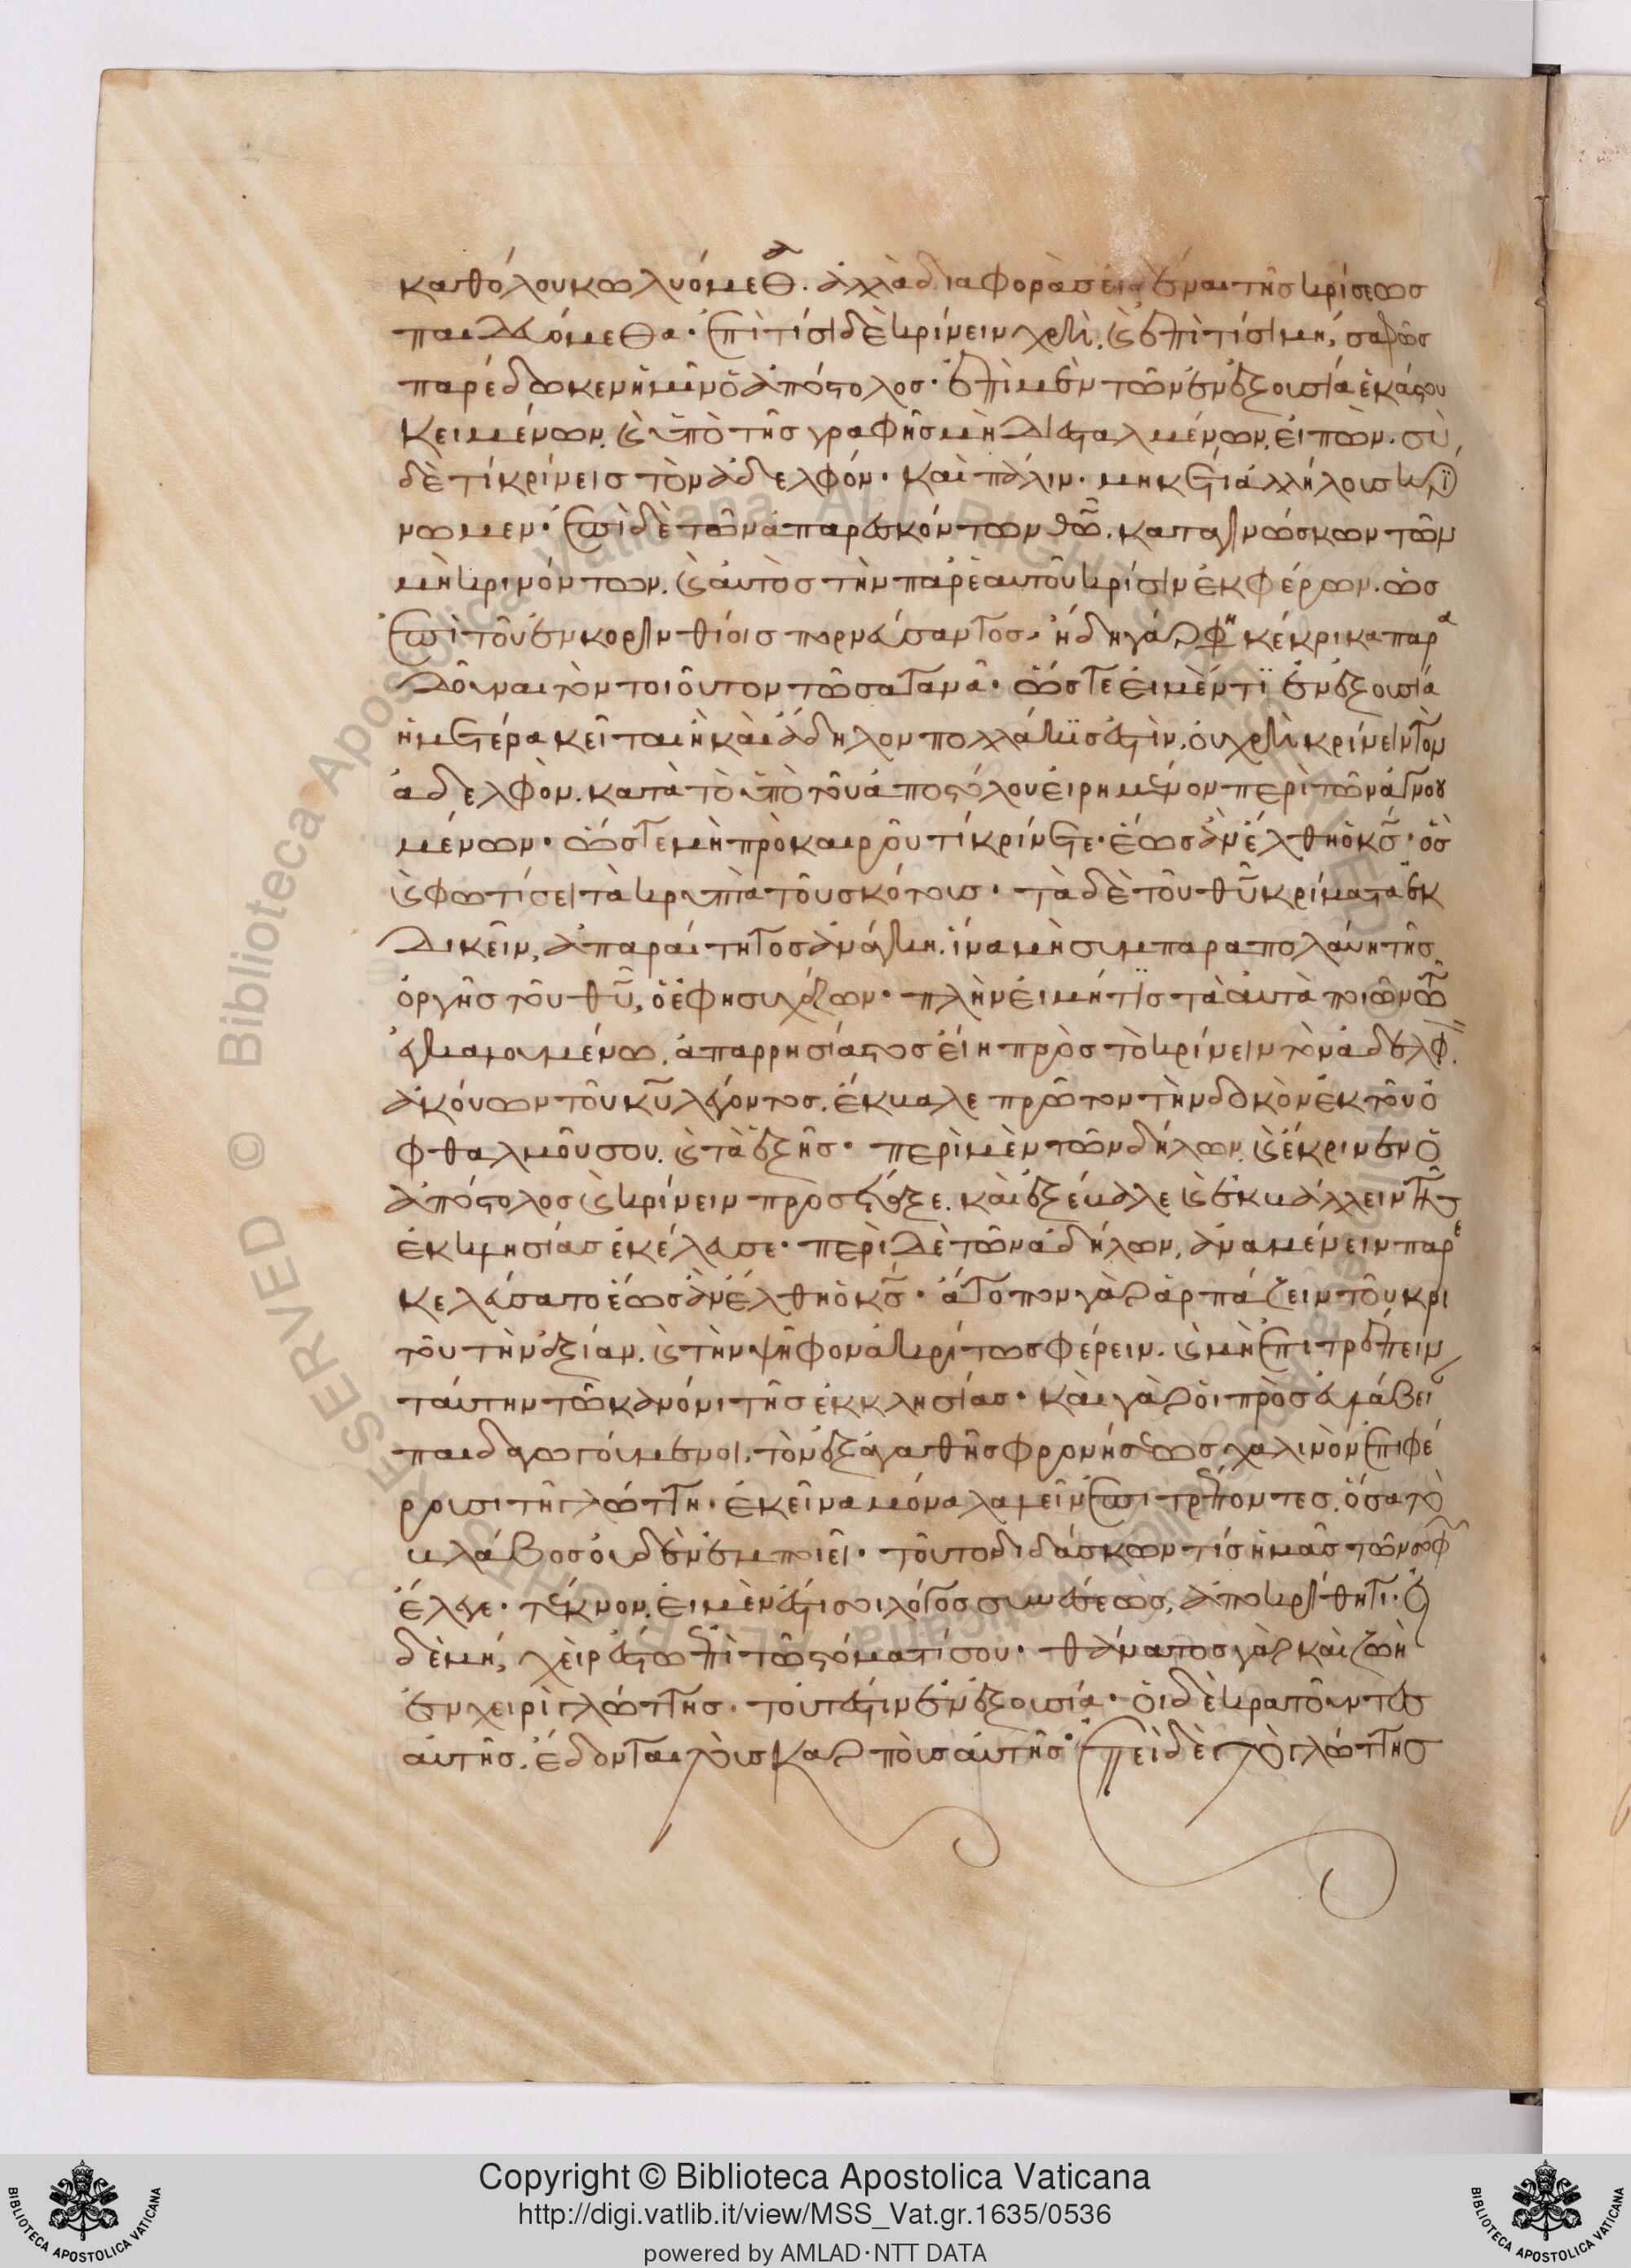 καθόλου κωλυόμεθα. ἀλλὰ διαφορὰς εἶναι τῆς κρίσεως
παιδευόμεθα· ἐπὶ τίσι δὲ κρίνειν χρὴ, καὶ ἐπὶ τίσι μή, σαφῶς
παρέδωκεν ἡμῖν ὁ ἀπόστολος· ἐπὶ μὲν τῶν ἐν ἐξουσία ἑκάστου
κειμένων, καὶ ὑπὸ τῆς γραφῆς μὴ διεσταλμένων, εἰπὼν· σὺ
δὲ τί κρίνεις τὸν ἀδελφόν· καὶ πάλιν· μηκέτι ἀλλήλους κρί
νωμεν· ἐπὶ δὲ τῶν ἀπαρεσκόντων θεῶ, καταγινώσκων τῶν
μὴ κρινόντων, καὶ αὐτὸς τὴν παρ' ἑαυτοῦ κρίσιν ἐκφέρων. ὡς
ἐπὶ τοῦ ἐν κορινθίοις πορνεύσαντος, ἤδη γάρ φη κέκρικα παρα
δοῦναι τὸν τοιοῦτον τῶ σατανᾶ· ὥστε εἰ μέν τι ἐν ἐξουσία
ἡμετέρα κεῖται ἢ καὶ ἄδηλον πολλάκις ἐστὶν, οὐ χρὴ κρίνειν τὸν
ἀδελφὸν. κατὰ τὸ ὑπὸ τοῦ ἀποστόλου εἰρημένον περὶ τῶν ἀγνοου
μένων· ὥστε μὴ πρὸ καιροῦ τί κρίνετε· ἕως ἂν ἔλθη ὁ κς· ὃς
καὶ φωτίσει τὰ κρυπτὰ τοῦ σκότους· τὰ δὲ τοῦ θυ κρίματα ἐκ
δικεῖν, ἀπαραίτητος ἀνάγκη. ἵνα μὴ συμπαραπολαύη τῆς
ὀργῆς τοῦ θυ, ὁ ἐφησυχάζων· πλὴν εἰ μή τις τὰ αὐτὰ ποιῶν τῶ
ἐγκαλουμένω, ἀπαρρησίαστος εἴη πρὸς τὸ κρίνειν τὸν ἀδελφ.
ἀκούων τοῦ κυ λέγοντος. ἔκβαλε πρῶτον τὴν δοκὸν ἐκ τοῦ ὀ
φθαλμοῦ σου. καὶ τὰ ἑξῆς· περὶ μὲν τῶν δήλων, καὶ ἔκρινεν ὁ
ἀπόστολος καὶ κρίνειν προσέταξε. καὶ ἐξέβαλε καὶ ἐκβάλλειν τῆς
ἐκκλησίας ἐκέλευσε· περὶ δὲ τῶν ἀδήλων, ἀναμένειν παρε
κελεύσατο ἕως ἂν ἔλθη ὁ κς· ἄτοπον γὰρ ἁρπάζειν τοῦ κρι
τοῦ τὴν ἀξίαν. καὶ τὴν ψῆφον ἀκρίτως φέρειν. καὶ μὴ ἐπιτρέπειν
ταύτην τῶ κανόνι τῆς ἐκκλησίας· καὶ γὰρ οἱ πρὸς εὐλάβειαν
παιδαγωγούμενοι, τὸν ἐξ ἀγαθῆς φρονήσεως χαλινὸν ἐπιφέ
ρουσι τῆ γλώττη· ἐκεῖνα μόνα λαλεῖν ἐπιτρέποντες, ὅσα τὸ
βλάβος οὐδὲν ἐμποιεῖ· τοῦτο διδάσκων τίς ἡμᾶς τῶν σοφ
ἔλεγε· τέκνον, εἰ μὲν ἐστί σοι λόγος συνέσεως, ἀποκρίθητι· εἰ
δὲ μή, χεὶρ ἔστω ἐπὶ τῶ στόματί σου· θάνατος γὰρ καὶ ζωὴ
ἐν χειρὶ γλώττης· τοῦτ' ἔστιν ἐν ἐξουσία· οἱ δὲ κρατοῦντες
αὐτῆς, ἔδονται τοὺς καρποὺς αὐτῆς· ἐπεὶ δὲ τὸ γλώττης
Copyright © Biblioteca Apostolica Vaticana
http://digi.vatlib.it/view/MSS_Vat.gr.1635/0536
powered by AMLAD·NTT DATA